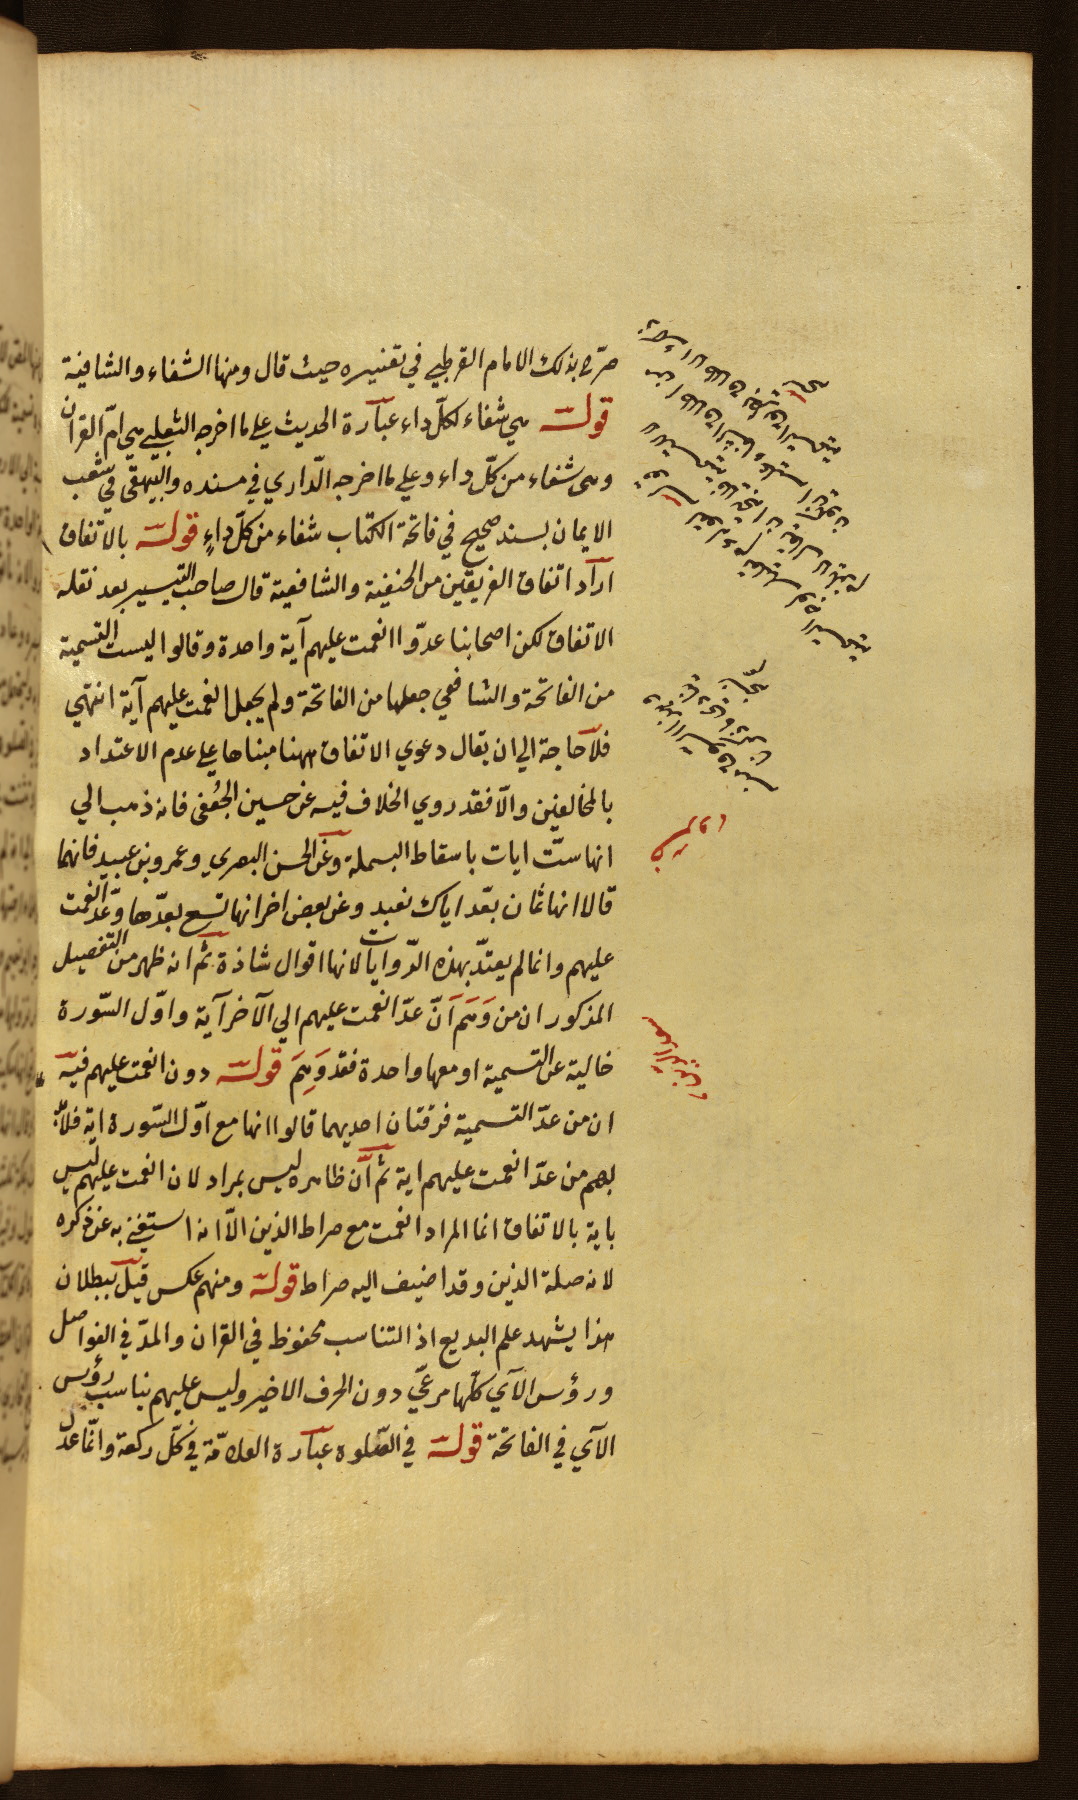 صرّح بذلك الامام القرطبي في تفسيره حيث قال ومنها الشفاء والشافية
قوله هي شفاء لكلّ داء عبارة الحديث على ما اخرجه الثعلبي هي امّ القرآن
وهي شفاء من كلّ داء وعلى ما اخرجه الدّارمي في مسنده والبيهقى في شعب
الايمان بسند صحيح في فاتحة الكتاب شفاء من كلّ داءٍ قوله بالاتفاق
اراد اتفاق الفريقين من الحنفية والشافعية قال صاحب التيسير بعد نقله
الاتفاق لكن اصحابنا عدّوا انعمت عليهم آية واحدة وقالوا ليست التسمية
من الفاتحة والشافعي جعلها من الفاتحة ولم يجعل انعمت عليهم آية انتهي
فلا حاجة الي ان يقال دعوي الاتفاق ههنا مبناها على عدم الاعتداد
بالمخالفين والّا فقد روي الخلاف فيه عن حسين الجُعفى فانه ذهب الي
انها ستّ ايات باسقاط البسملة وعن الحسن البصري وعمرو بن عبيد فانهما
قالا انها ثمان بعدّ اياك نعبد وعن بعض اخر انها تسع بعدّها وعدّ انعمت
عليهم وانما لم يعتدّ بهذه الرّوايات لانها اقوال شاذة ثم انه ظهر من التفصيل
المذكور ان من وَهَم اَنّ عدّ انعمت عليهم الي الآخر آية واوّل السّورة
خالية عن التسمية او معها واحدة فقد وَهِمَ قوله دون انعمت عليهم فيه
ان من عدّ التسمية فرقتان احديهما قالوا انها مع اوّل السّورة اية فلا بدّ
لهم من عدّ انعمت عليهم اية ثم انّ ظاهره ليس بمراد لان انعمت عليهم ليس
باية بالاتفاق انما المراد انعمت مع صراط الذين الّا انه استغني به عن ذكره
لانه صلة الذين وقد اضيف اليه صراط قوله ومنهم عكس قيل ببطلان
هذا يشهد علم البديع اذ التناسب محفوظ في القران والمدّ في الفواصل
ورؤس الآي كلّها مرعيّ دون الحرف الاخير وليس عليهم يناسب رؤس
الآي في الفاتحة قوله في الصّلوة عبارة العلامّة في كلّ ركعة وانّما عدل